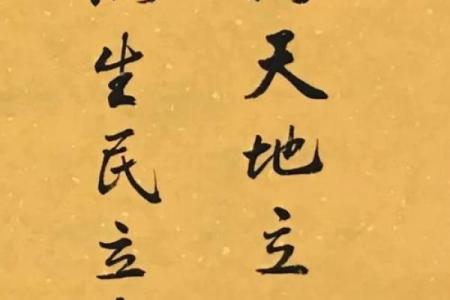 天地立
生民立